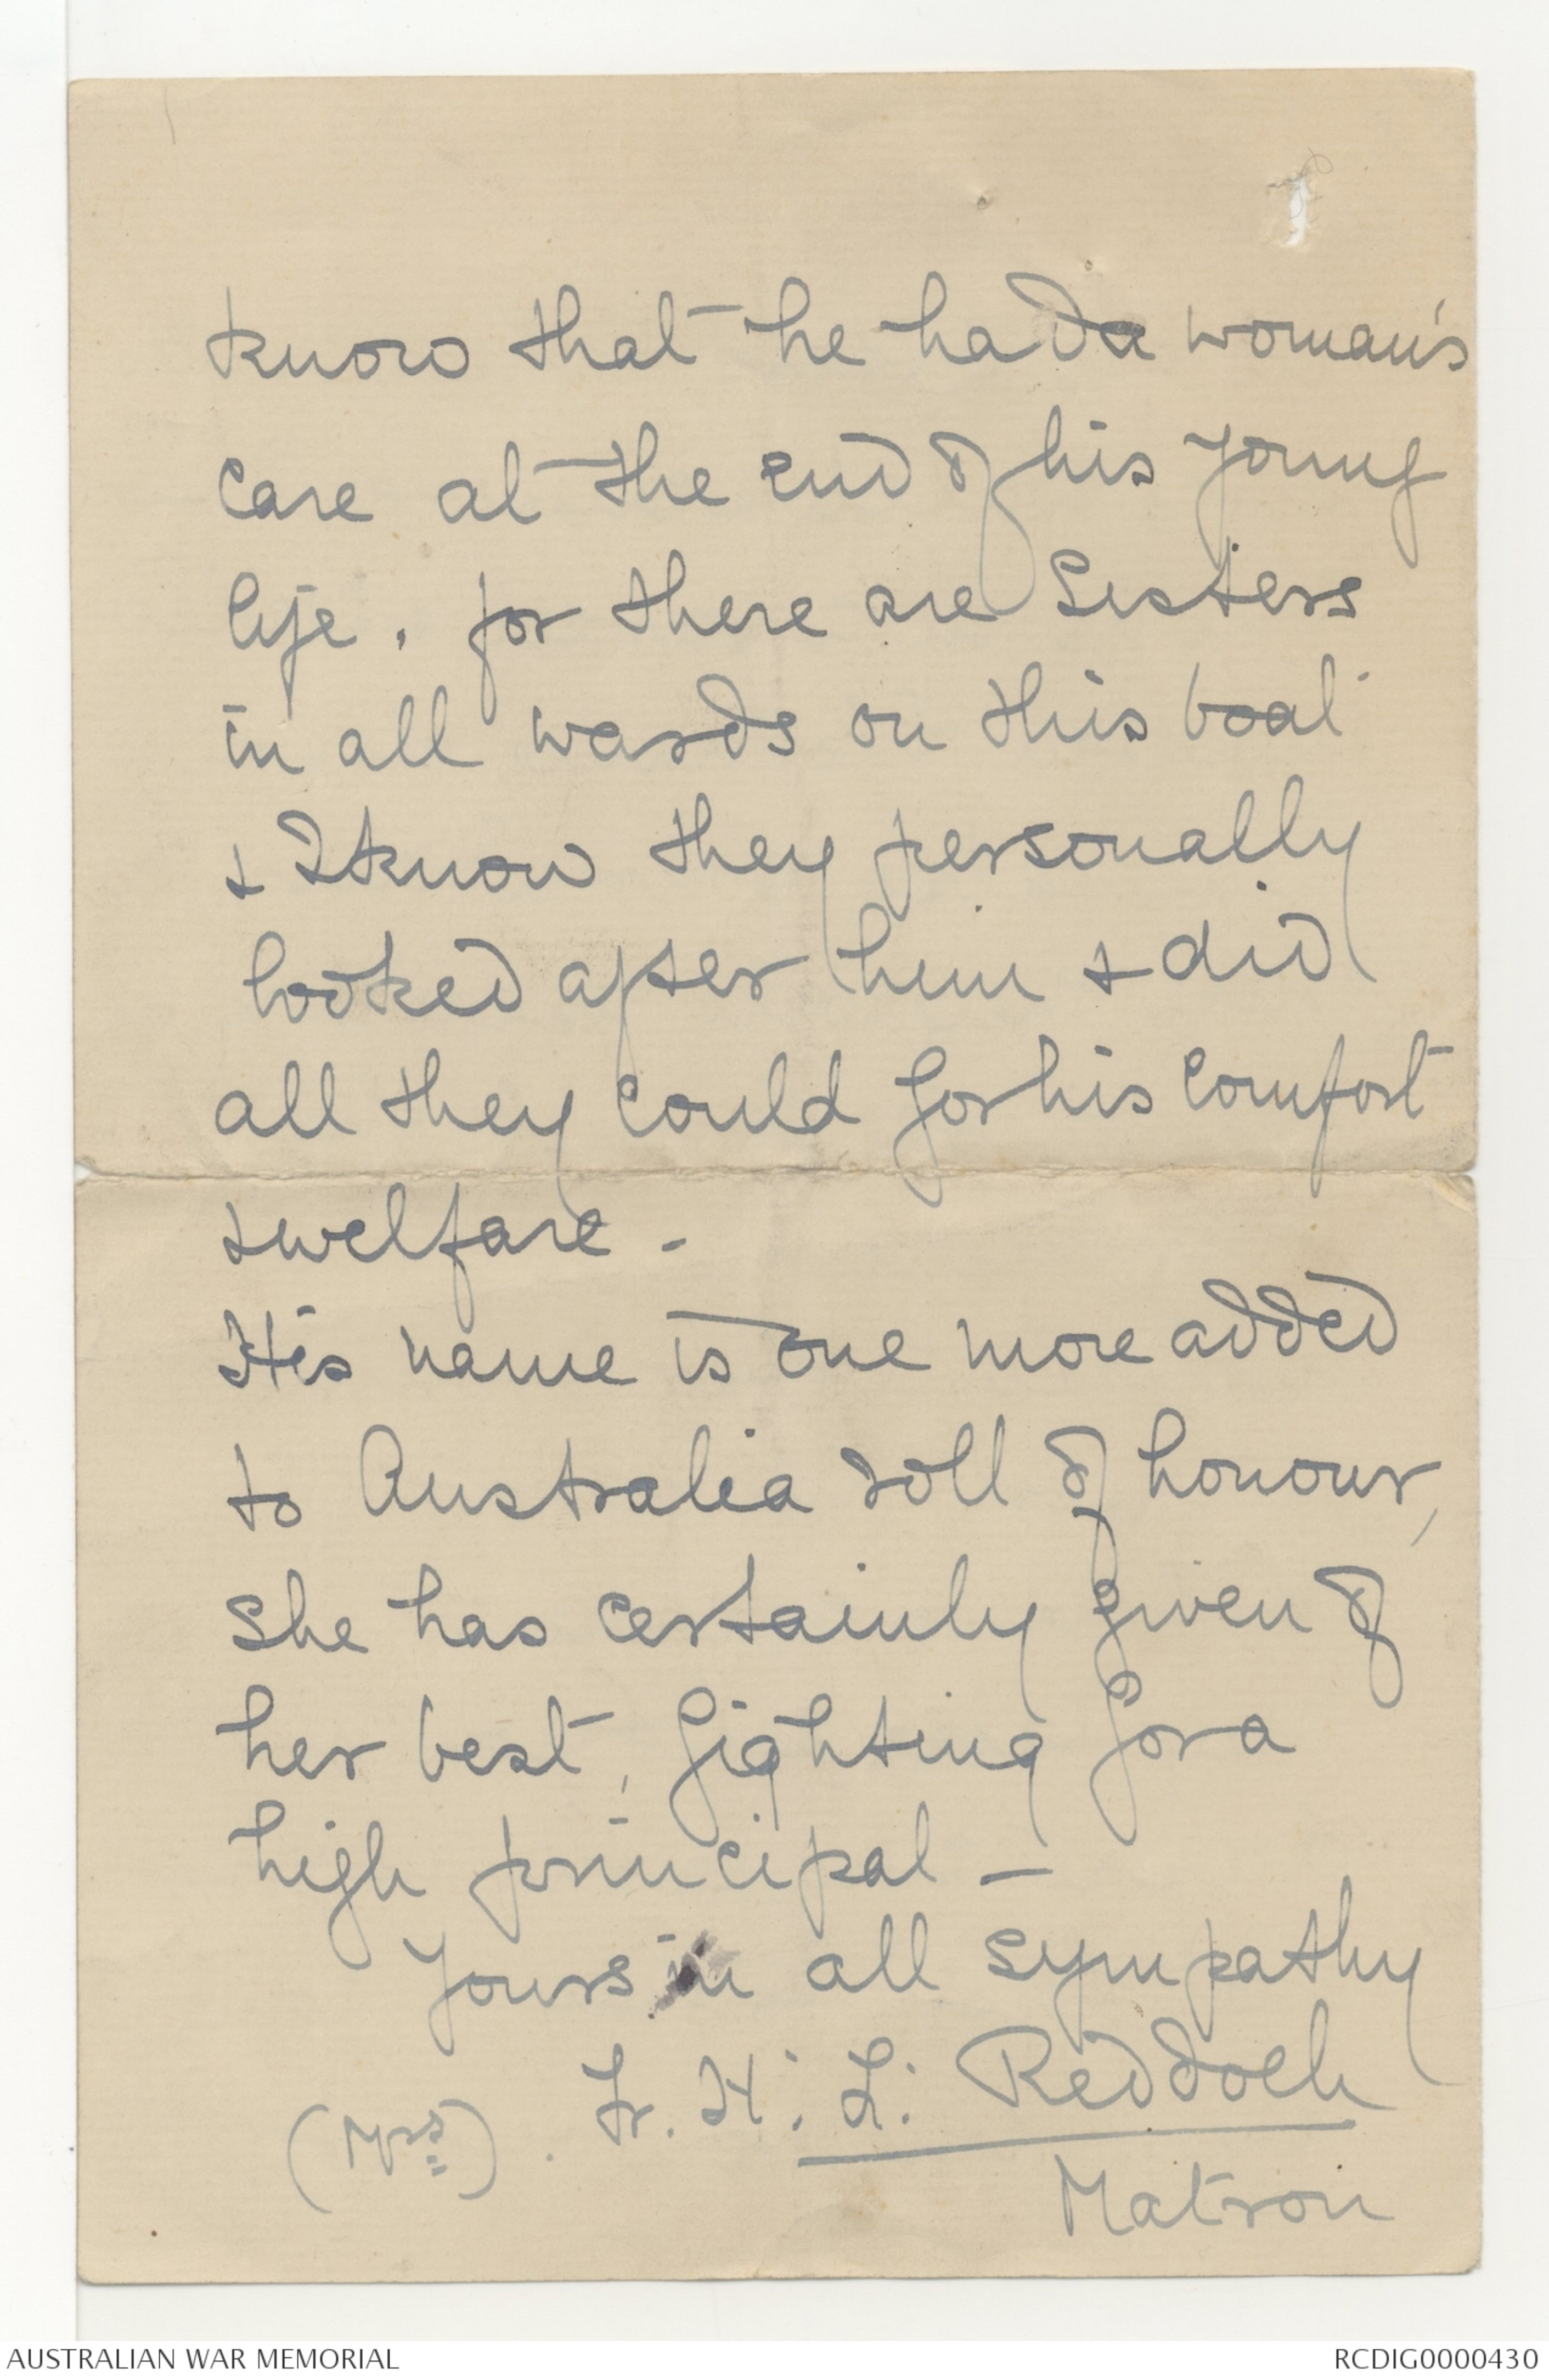 know that he had a woman's
care at the end of his young
life, for there are Sisters
in all wards on this boat
& I know they personally
looked after him & did
all they could for his comfort
& welfare -
His name is one more added
to Australia roll of honour,
she has certainly given of
her best, fighting for a
high principal -
Yours in all sympathy
(Mrs). Fr. H. L. Reddoch
Matron
AUSTRALIAN WAR MEMORIAL
RCDIG0000430